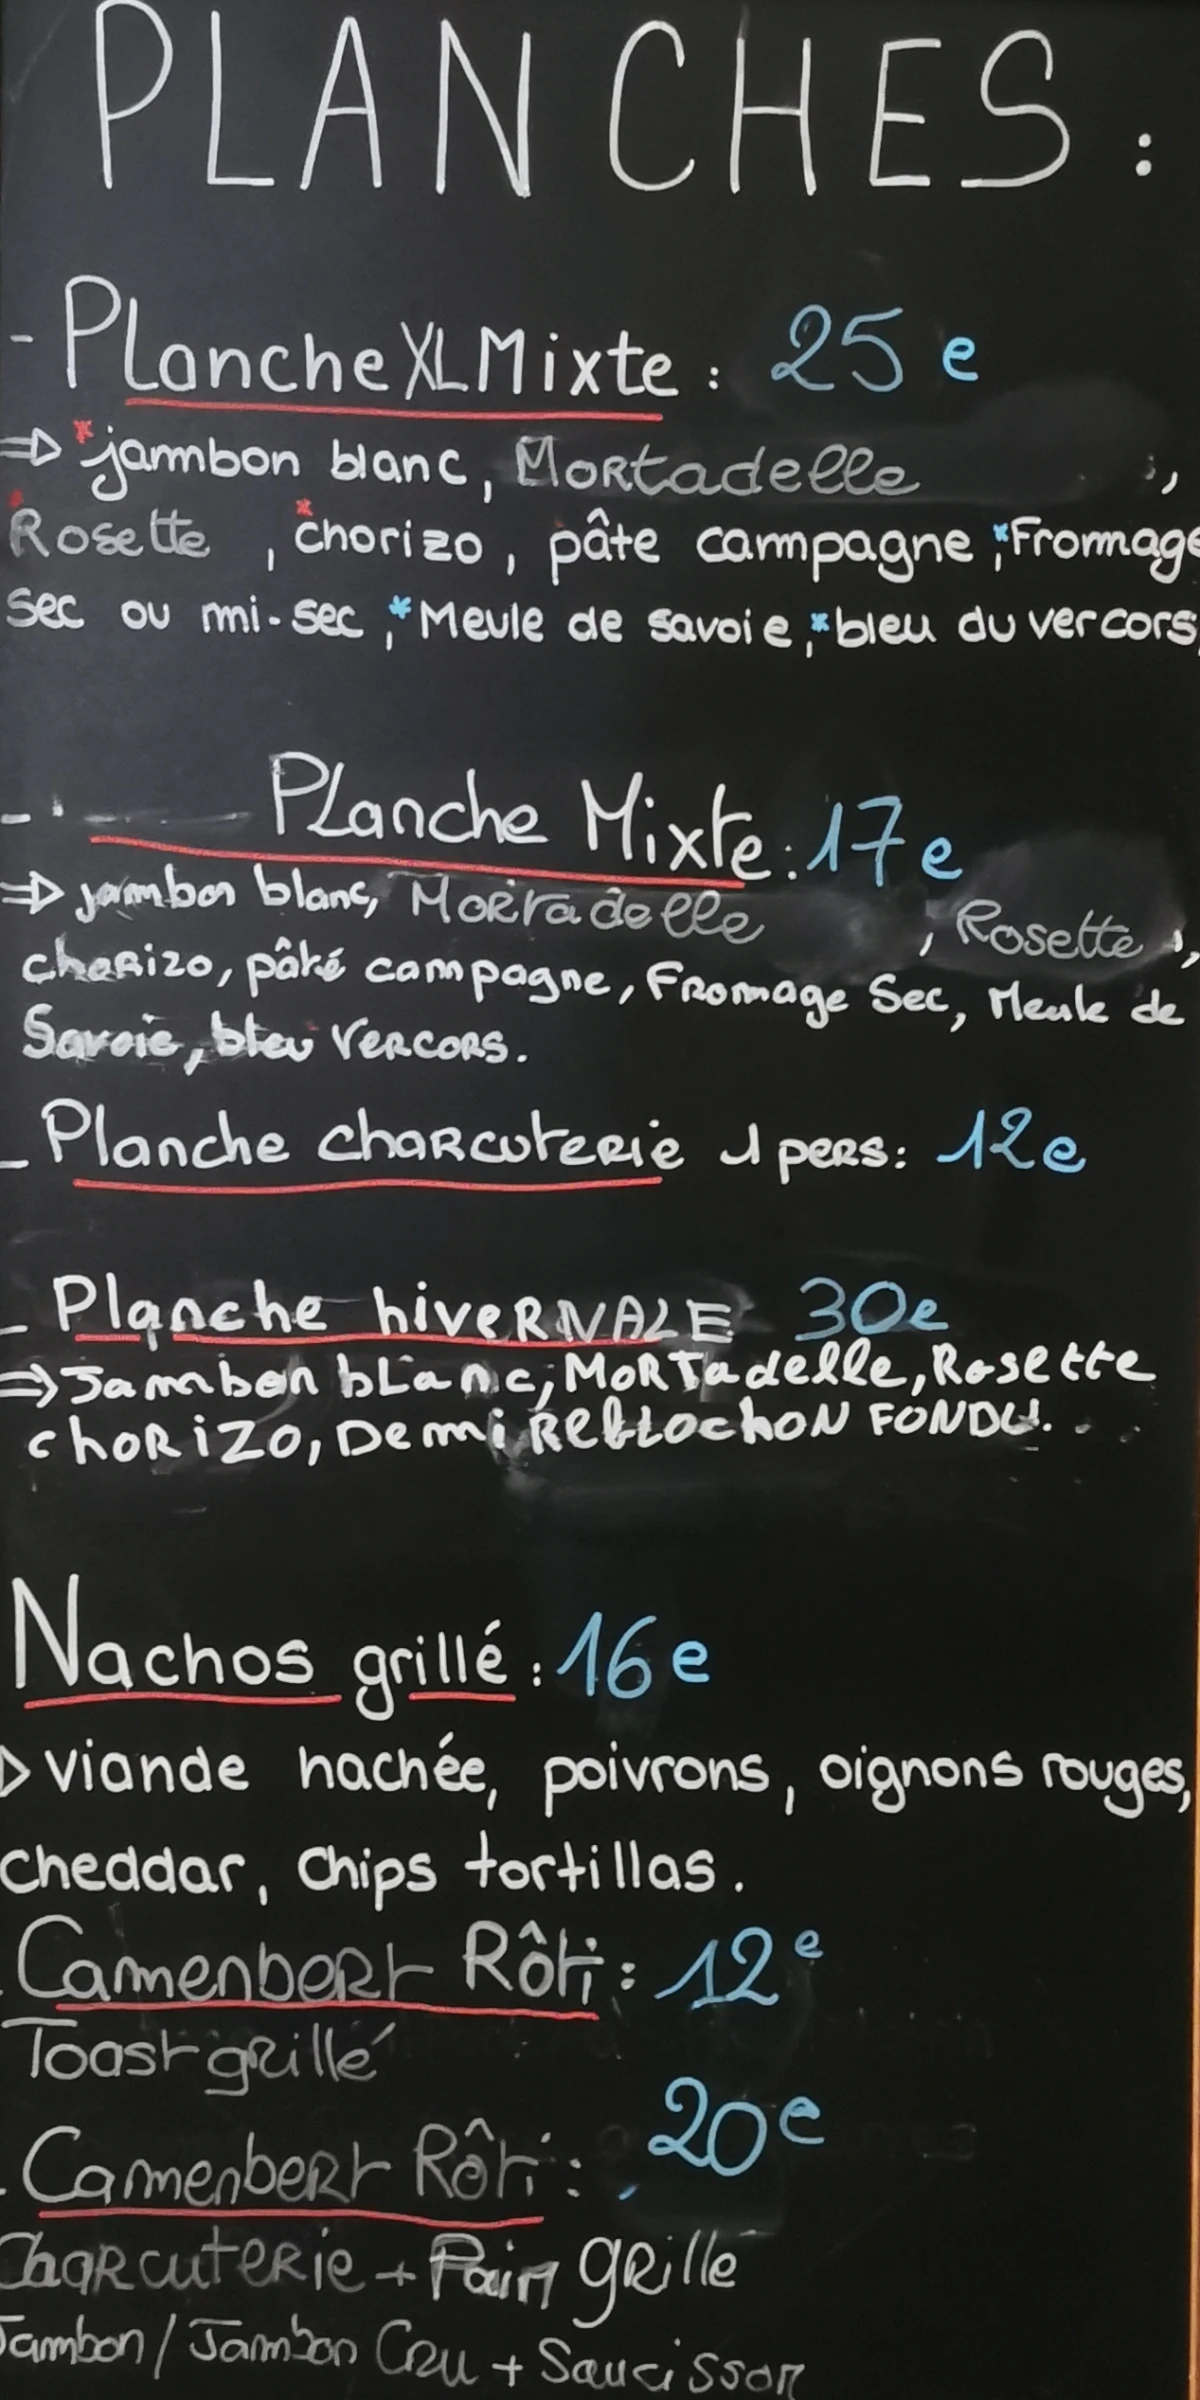 PLANCHES :
- Planche XL Mixte : 25 e
⇒ *jambon blanc, Mortadelle ,
Rosette , *chorizo, pâte campagne ,*Fromage
sec ou mi-sec ,*Meule de savoie ,*bleu du vercors,
- Planche Mixte : 17 e
⇒ jambon blanc, Mortadelle , Rosette ,
chorizo, pâté campagne, Fromage Sec, Meule de
Savoie, bleu Vercors.
- Planche charcuterie 1 pers : 12 e
- Planche hiverNALE 30 e
⇒ Jambon blanc, Mortadelle, Rosette
chorizo, Demi Reblochon FONDU.
Nachos grillé : 16 e
⇒ viande hachée, poivrons, oignons rouges,
cheddar, chips tortillas.
- Camenbert Rôti : 12 e
Toast grillé
- Camenbert Rôti : 20 e
Charcuterie + Pain grillé
Jambon / Jambon Cru + Saucisson